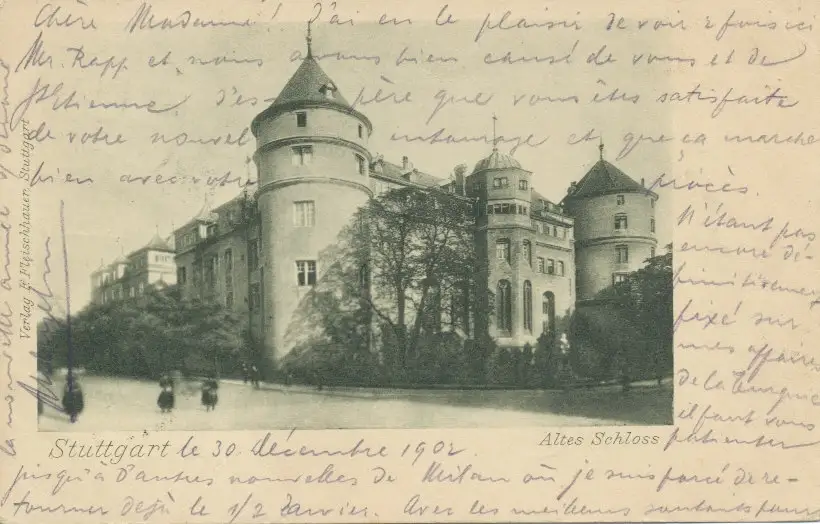 Chère Madame! J'ai eu le plaisir de voir 2 fois ici
Mr. Rapp et nous avons bien causé de vous et de
St Etienne. J'espère que vous êtes satisfaite
de votre nouvel entourage et que ça marche
bien avec votre procès.
N'étant pas
encore dé-
finitivement
fixé sur
mes affaires
de la Turquie
il faut vous
patienter
Stuttgart le 30. décembre 1902
Altes Schloss
jusqu'à d'autres nouvelles de Milan où je suis forcé de re-
tourner déjà le 1/2 Janvier. Avec les meilleurs souhaits pour
la nouvelle année
Verlag Fleischhauer, Stuttgart